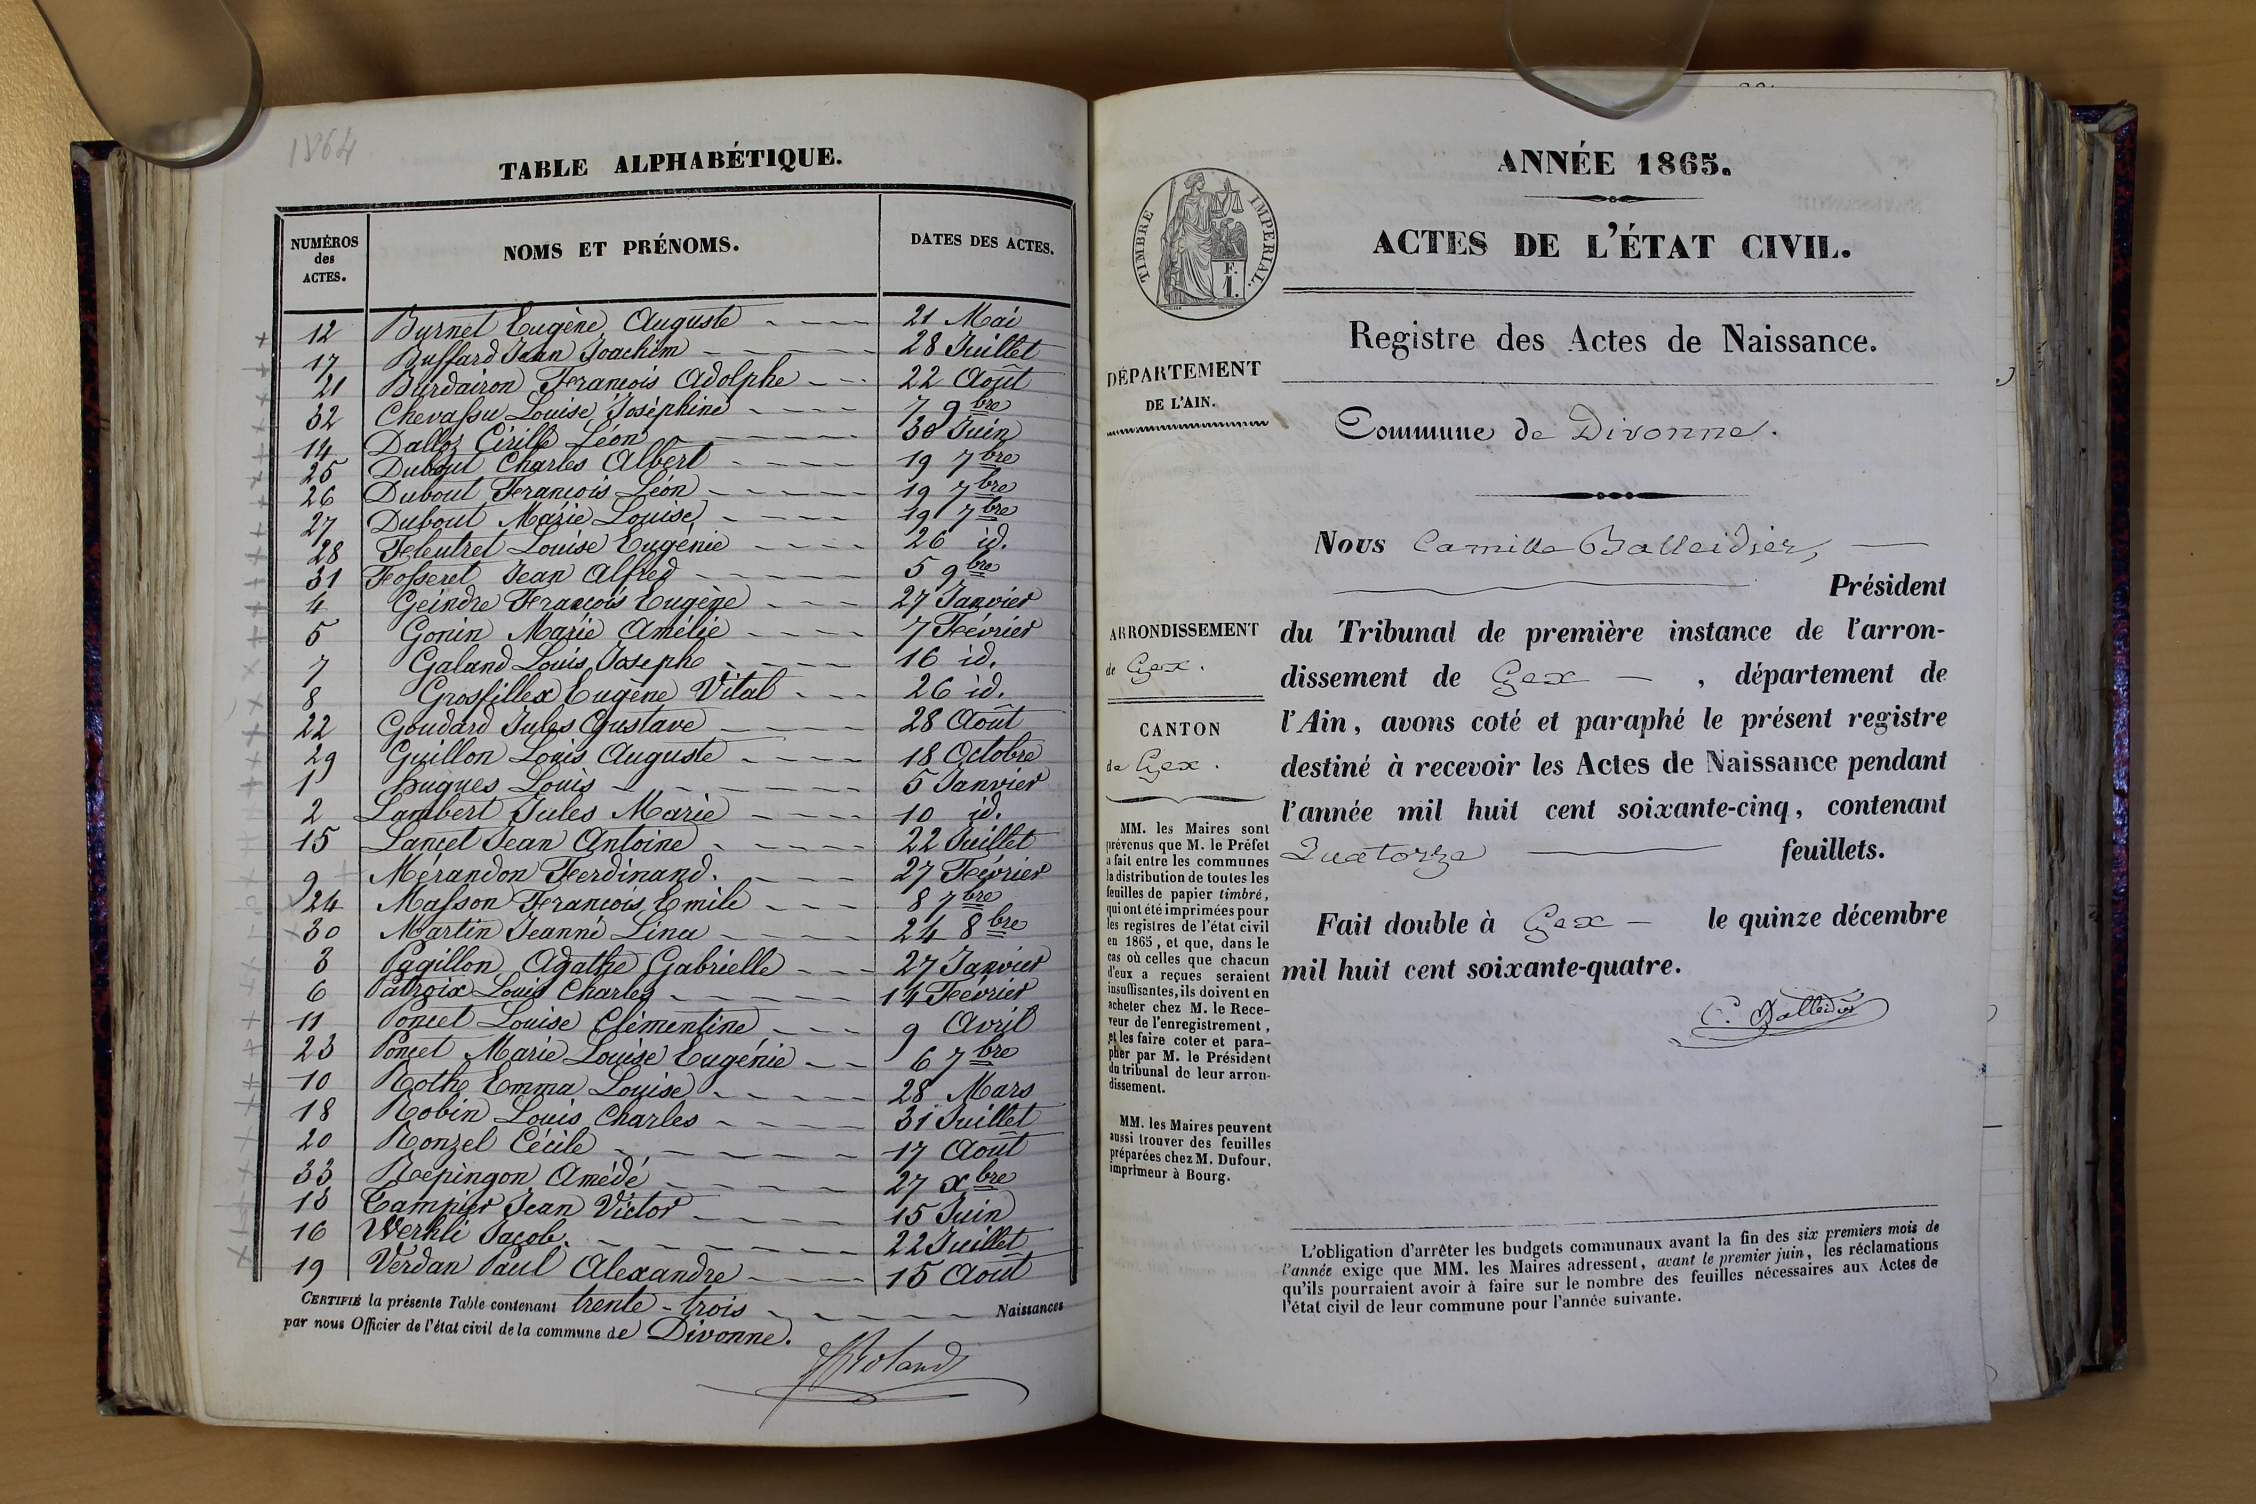 1864
TABLE ALPHABÉTIQUE.
NUMÉROS des ACTES. NOMS ET PRÉNOMS. DATES DES ACTES.
12 Burnet Eugène Auguste 21 Mai
17 Buffard Jean Joachim 28 Juillet
21 Burdairon François Adolphe 22 Août
32 Chevassu Louise Joséphine 7 9bre
14 Dalloz Cirille Léon 30 Juin
25 Dubout Charles Albert 19 7bre
26 Dubout François Léon 19 7bre
27 Dubout Marie Louise 19 7bre
28 Fleutret Louise Eugénie 26 id.
31 Fosseret Jean Alfred 5 9bre
4 Geindre François Eugène 27 Janvier
5 Gonin Marie Amélie 7 Février
7 Galand Louis Joseph 16 id.
8 Grosfillex Eugène Vital 26 id.
22 Goudard Jules Gustave 28 Août
29 Guillon Louis Auguste 18 Octobre
1 Hugues Louis 5 Janvier
2 Lambert Jules Marie 10 id.
15 Lancet Jean Antoine 22 Juillet
9 Mérandon Ferdinand. 27 Février
24 Masson François Emile 8 7bre
30 Martin Jeanne Lina 24 8bre
3 Pagillon Agathe Gabrielle 27 Janvier
6 Patroix Louis Charles 14 Février
11 Poncet Louise Clémentine 9 Avril
23 Poncet Marie Louise Eugénie 6 7bre
10 Roth Emma Louise 28 Mars
18 Robin Louis Charles 31 Juillet
20 Ronzel Cécile 17 Août
33 Répingon Amédé 27 xbre
13 Tampier Jean Victor 15 Juin
16 Werhli Jacob. 22 Juillet
19 Verdan Paul Alexandre 15 Août
CERTIFIÉ la présente Table contenant trente-trois Naissances
par nous Officier de l'état civil de la commune de Divonne.
Roland
ANNÉE 1865.
ACTES DE L'ÉTAT CIVIL.
TIMBRE IMPERIAL.
F.
1.
Registre des Actes de Naissance.
DÉPARTEMENT
DE L'AIN.
Commune de Divonne.
Nous Camille Balleidier,
Président
ARRONDISSEMENT
de Gex.
CANTON
de Gex.
du Tribunal de première instance de l'arron-
dissement de Gex, département de
l'Ain, avons coté et paraphé le présent registre
destiné à recevoir les Actes de Naissance pendant
l'année mil huit cent soixante-cinq, contenant
Quatorze feuillets.
Fait double à Gex le quinze décembre
mil huit cent soixante-quatre.
C. Balleidier
MM. les Maires sont
prévenus que M. le Préfet
a fait entre les communes
la distribution de toutes les
feuilles de papier timbré,
qui ont été imprimées pour
les registres de l'état civil
en 1865, et que, dans le
cas où celles que chacun
d'eux a reçues seraient
insuffisantes, ils doivent en
acheter chez M. le Rece-
veur de l'enregistrement,
et les faire coter et para-
pher par M. le Président
du tribunal de leur arron-
dissement.
MM. les Maires peuvent
aussi trouver des feuilles
préparées chez M. Dufour,
imprimeur à Bourg.
L'obligation d'arrêter les budgets communaux avant la fin des six premiers mois de
l'année exige que MM. les Maires adressent, avant le premier juin, les réclamations
qu'ils pourraient avoir à faire sur le nombre des feuilles nécessaires aux Actes de
l'état civil de leur commune pour l'année suivante.